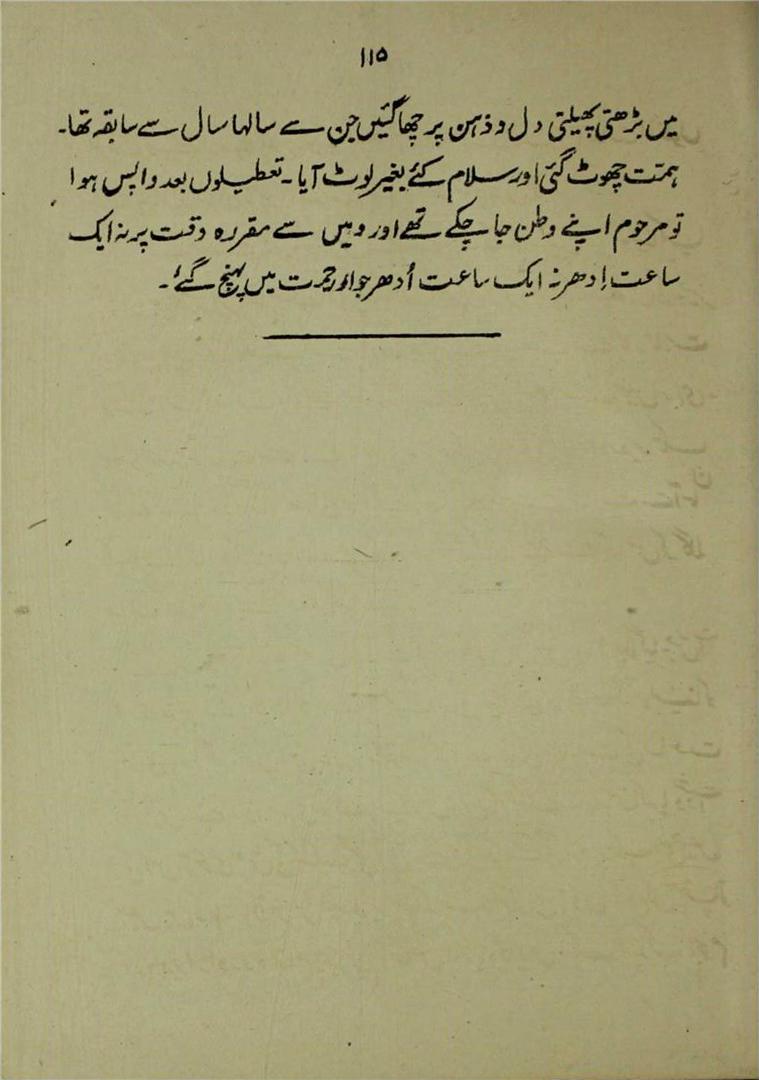 ۱۱۵
میں بڑھتی پھیلتی دل و ذہن پر چھا گئیں جن سے سالہا سال سے سابقہ تھا۔
ہمت چھوٹ گئی اور سلام کئے بغیر لوٹ آیا۔ تعطیلوں بعد واپس ہوا
تو مرحوم اپنے وطن جا چکے تھے اور وہیں سے مقررہ وقت پر نہ ایک
ساعت اِدھر نہ ایک ساعت اُدھر جوارِ رحمت میں پہنچ گئے۔